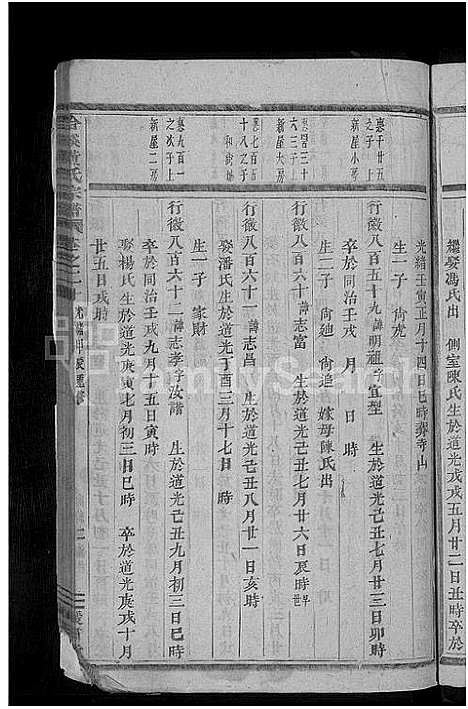 繼娶馮氏 側室陳氏生於道光戊戌五月廿二日丑時卒於
光緒壬寅正月十四日巳時葬寺山
生一子 尚虎
惠千廿五
之子上
新屋小房
行徽八百五十九 諱明祖字宜型 生於道光己丑七月廿三日卯時
卒於同治壬戌 月 日 時
生二子 尚廸 尚追 嫁母陳氏出
六三子上
新屋大房
行徽八百六十 諱志富 生於道光己丑七月廿六日亥時 早世
惠七百五
十八之子
行徽八百六十一 諱志昌 生於道光己丑八月廿一日亥時
娶潘氏生於道光丁酉三月十七日 時
生一子 家財
惠九百一
之次子上
新屋二房
行徽八百六十二 諱志孝字汝諧 生於道光己丑九月初三日巳時
卒於同治壬戌九月十五日寅時
娶楊氏 生於道光庚寅七月初三日巳時 卒於道光庚戌十月
廿五日戌時
黃氏宗譜
FamilySearch